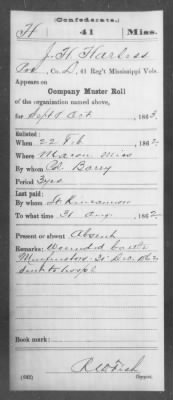 (Confederate.)
H 41 Miss.
J. H. Harless
Pvt, Co. D, 41 Reg't Mississippi Vols.
Appears on
Company Muster Roll
of the organization named above,
for Sept & Oct, 1863.
Enlisted:
When 22 Feb, 1862
Where Macon Miss
By whom Barry
Period 3 yrs
Last paid:
By whom Kincannon
To what time 31 Aug, 1862
Present or absent Absent
Remarks: Wounded battle
Murfreesboro 31 Dec 1862
sent to hospl
Book mark:
R W Fish
(642) Copyist.